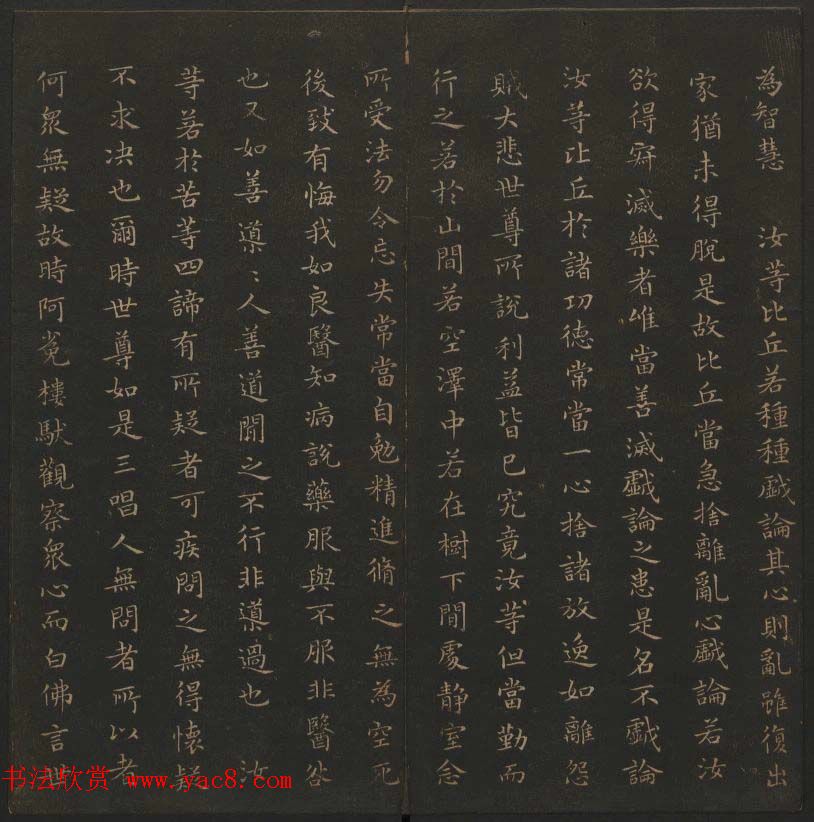 為智慧 汝等比丘若種種戲論其心則亂雖復出
家猶未得脫是故比丘當急捨離亂心戲論若汝
欲得寂滅樂者唯當善滅戲論之患是名不戲論
汝等比丘於諸功德常當一心捨諸放逸如離怨
賊大悲世尊所說利益皆已究竟汝等但當勤而
行之若於山間若空澤中若在樹下閒處靜室念
所受法勿令忘失常當自勉精進脩之無為空死
後致有悔我如良醫知病說藥服與不服非醫咎
也又如善導〻人善道聞之不行非導過也 汝
等若於苦等四諦有所疑者可疾問之無得懷疑
不求决也爾時世尊如是三唱人無問者所以者
何眾無疑故時阿㝹樓馱觀察眾心而白佛言世
书法欣赏 www.yac8.com